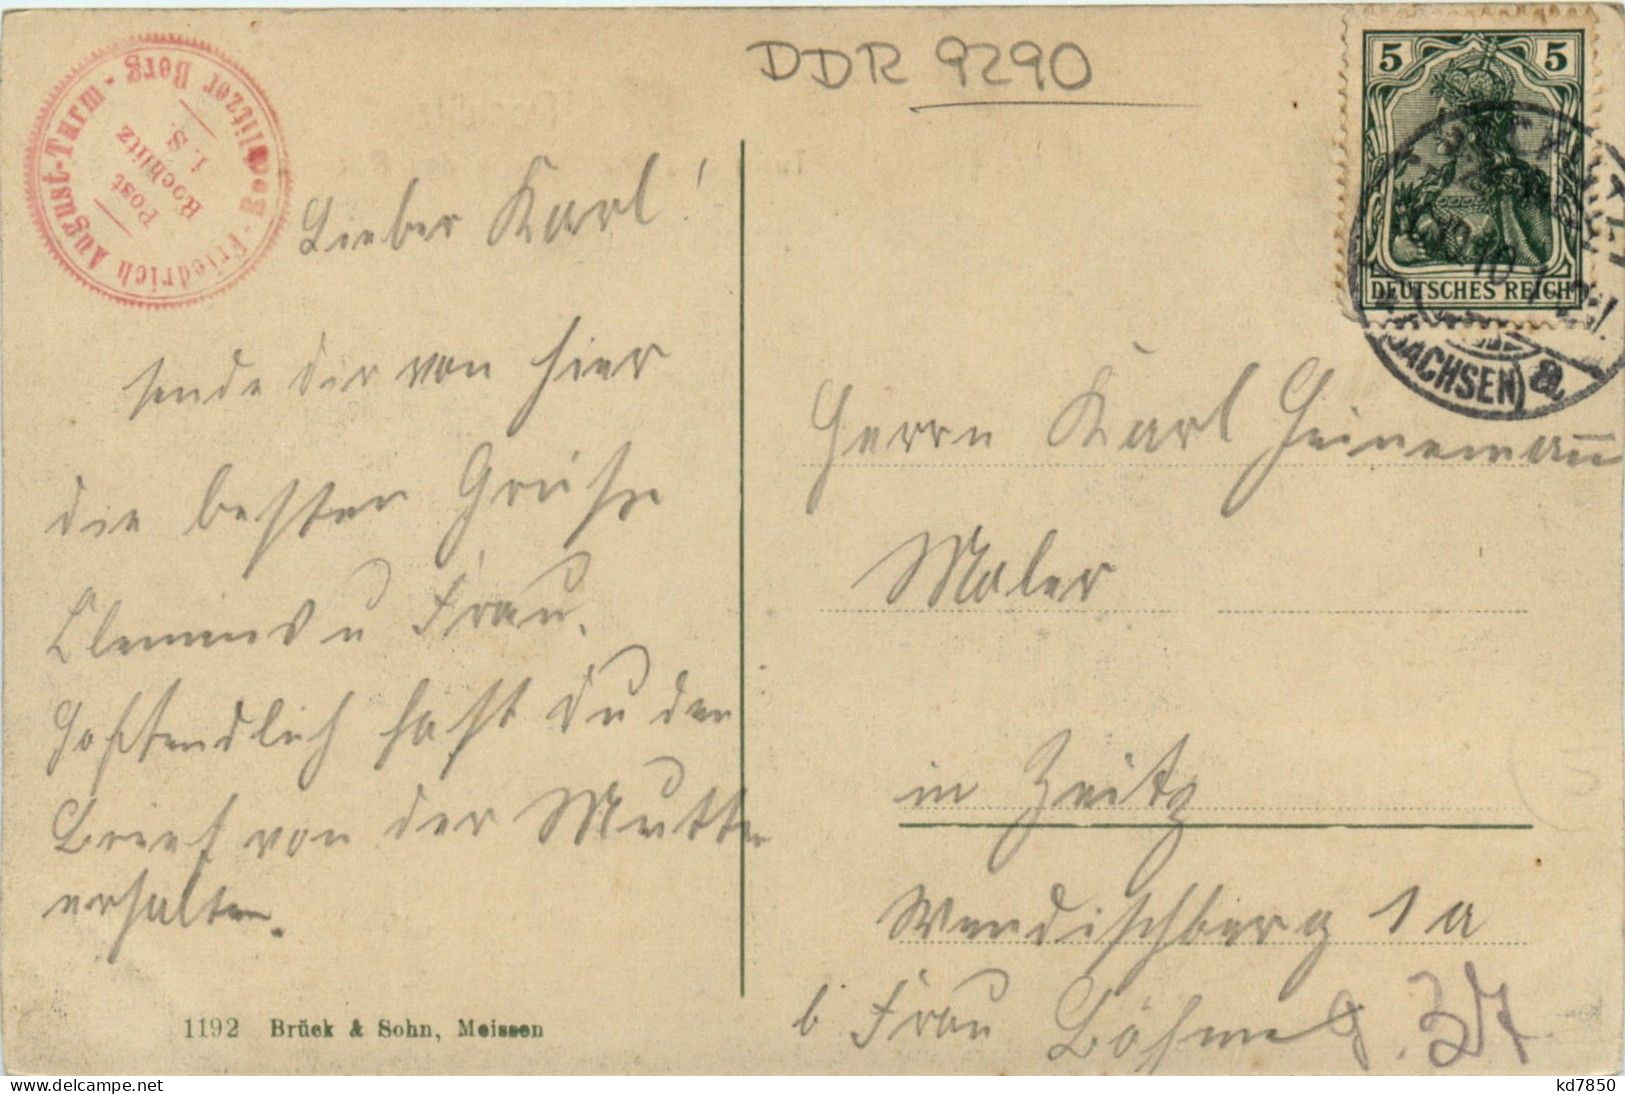 DDR 9290
Friedrich August-Turm - Rochlitzer Berg -
Post
Rochlitz
i. S.
5 5
DEUTSCHES REICH
(SACHSEN) a
Lieber Karl!
sende dir von hier
die besten Grüße
Clemens u Frau.
Hoffendlich hast Du den
Brief von der Mutter
erhalten.
Herrn Karl Heinemann
Maler
in Zeitz
Wendischberg 1 a
b Frau Böhme
1192 Brück & Sohn, Meissen
kd7850